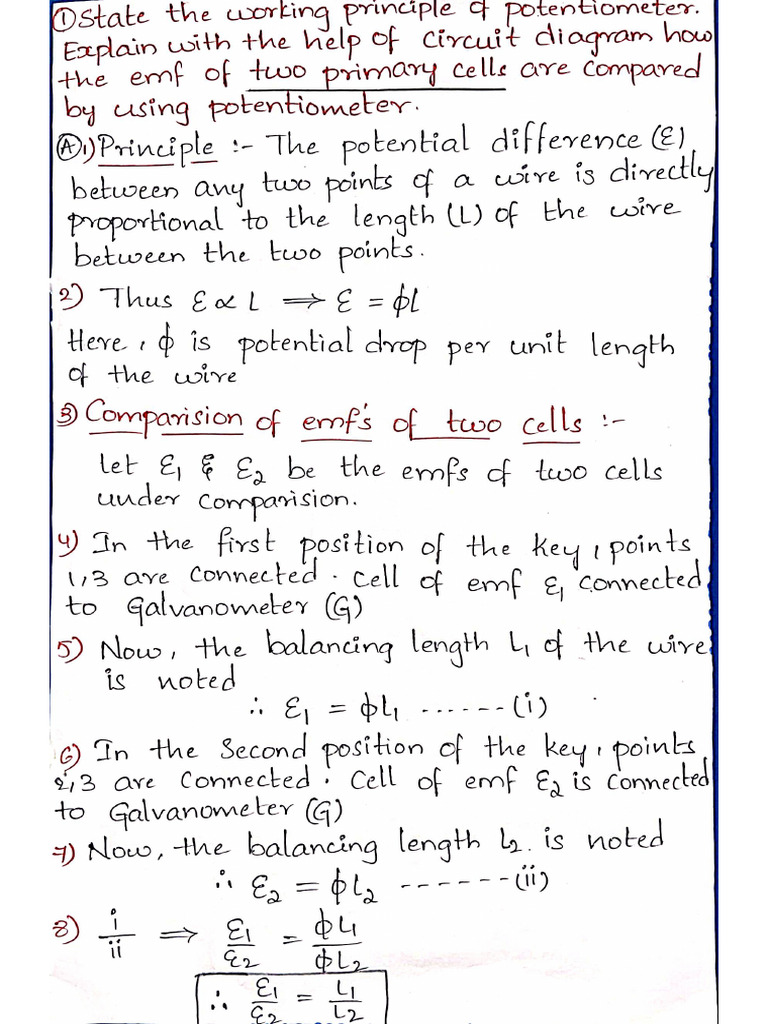 ①State the working principle of potentiometer.
Explain with the help of circuit diagram how
the emf of two primary cells are compared
by using potentiometer.
Ⓐ1) Principle :- The potential difference (ε)
between any two points of a wire is directly
proportional to the length (L) of the wire
between the two points.
2) Thus ε ∝ L ⟹ ε = ϕL
Here, ϕ is potential drop per unit length
of the wire
3) Comparision of emf's of two cells :-
let ε₁ & ε₂ be the emfs of two cells
under comparision.
4) In the first position of the key, points
1,3 are connected. cell of emf ε₁ connected
to Galvanometer (G)
5) Now, the balancing length L₁ of the wire
is noted
∴ ε₁ = ϕL₁ ------(i)
6) In the second position of the key, points
2,3 are connected. Cell of emf ε₂ is connected
to Galvanometer (G)
7) Now, the balancing length L₂. is noted
∴ ε₂ = ϕL₂ ------(ii)
8) i/ii ⟹ ε₁/ε₂ = ϕL₁/ϕL₂
∴ ε₁/ε₂ = L₁/L₂